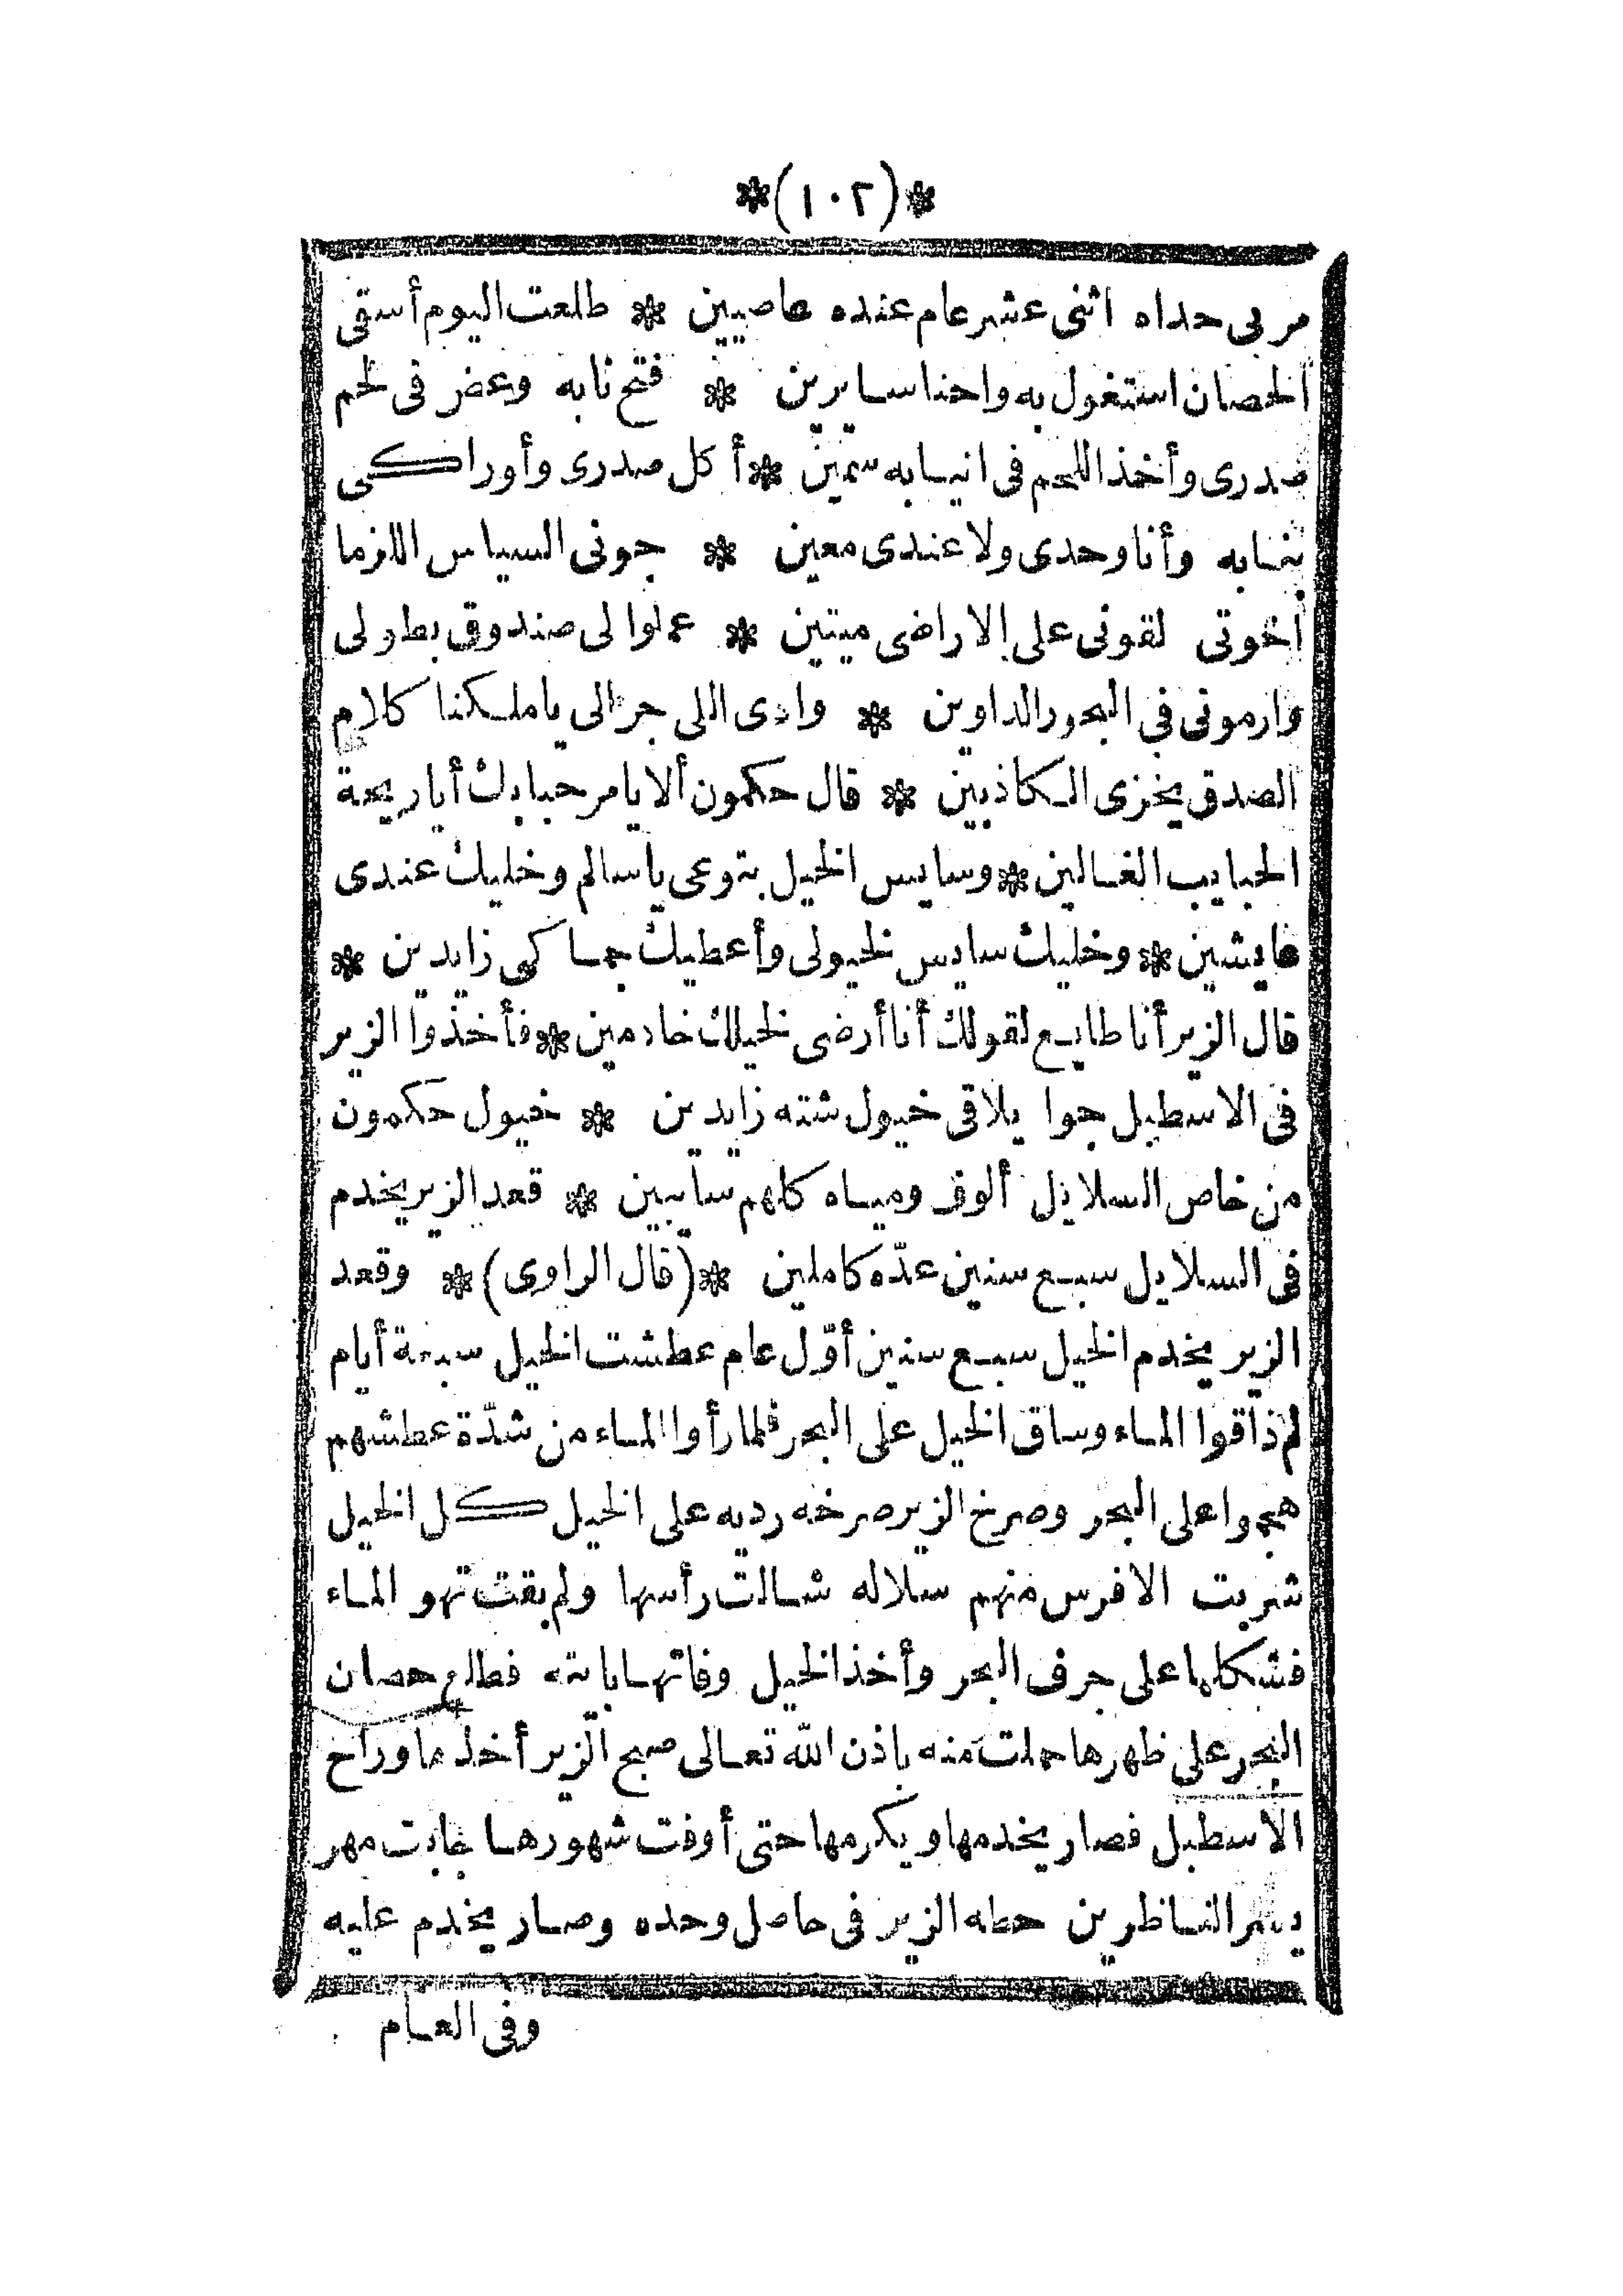 *(١٠٢)*
مربى حداه اثنى عشر عام عنده عاصيين * طلعت اليوم أسقى
الحصان استغول به واحنا سايرين * فتح نابه وعض فى لحم
صدرى وأخذ اللحم فى انيابه سمين * أكل صدرى وأوراكى
بنابه وأنا وحدى ولا عندى معين * جونى السياس اللزما
أخوتى لقونى على الاراضى ميتين * عملوا لى صندوق بطولى
وارمونى فى البحور الداوين * وادى اللى جرالى ياملكنا كلام
الصدق يخزى الكاذبين * قال حكمون ألا يامرحبا بك أيا ريحة
الحبايب الغالين * وسايس الخيل بتوعى ياسالم وخليك عندى
عايشين * وخليك سايس لخيولى وأعطيك جماكى زايدين *
قال الزير أنا طايع لقولك أنا أرضى لخيلك خادمين * فأخذوا الزير
فى الاسطبل جوا يلاقى خيول شته زايدين * خيول حكمون
من خاص السلايل ألوف ومياه كلهم سايبين * قعد الزير يخدم
فى السلايل سبع سنين عدّه كاملين * (قال الراوى) * وقعد
الزير يخدم الخيل سبع سنين أوّل عام عطشت الخيل سبعة أيام
لم ذاقوا الماء وساق الخيل على البحر فلما رأوا الماء من شدّة عطشهم
هجموا على البحر وصرخ الزير صرخه رديه على الخيل كل الخيل
شربت الا فرس منهم سلاله شالت رأسها ولم بقت تهو الماء
فشكلها على جرف البحر وأخذ الخيل وفاتها بايته فطلع حصان
البحر على ظهرها حملت منه باذن الله تعالى صبح الزير أخذها وراح
الاسطبل فصار يخدمها ويكرمها حتى أوفت شهورها جابت مهر
يسر الناظرين حطه الزير فى حاصل وحده وصار يخدم عليه
وفى العام